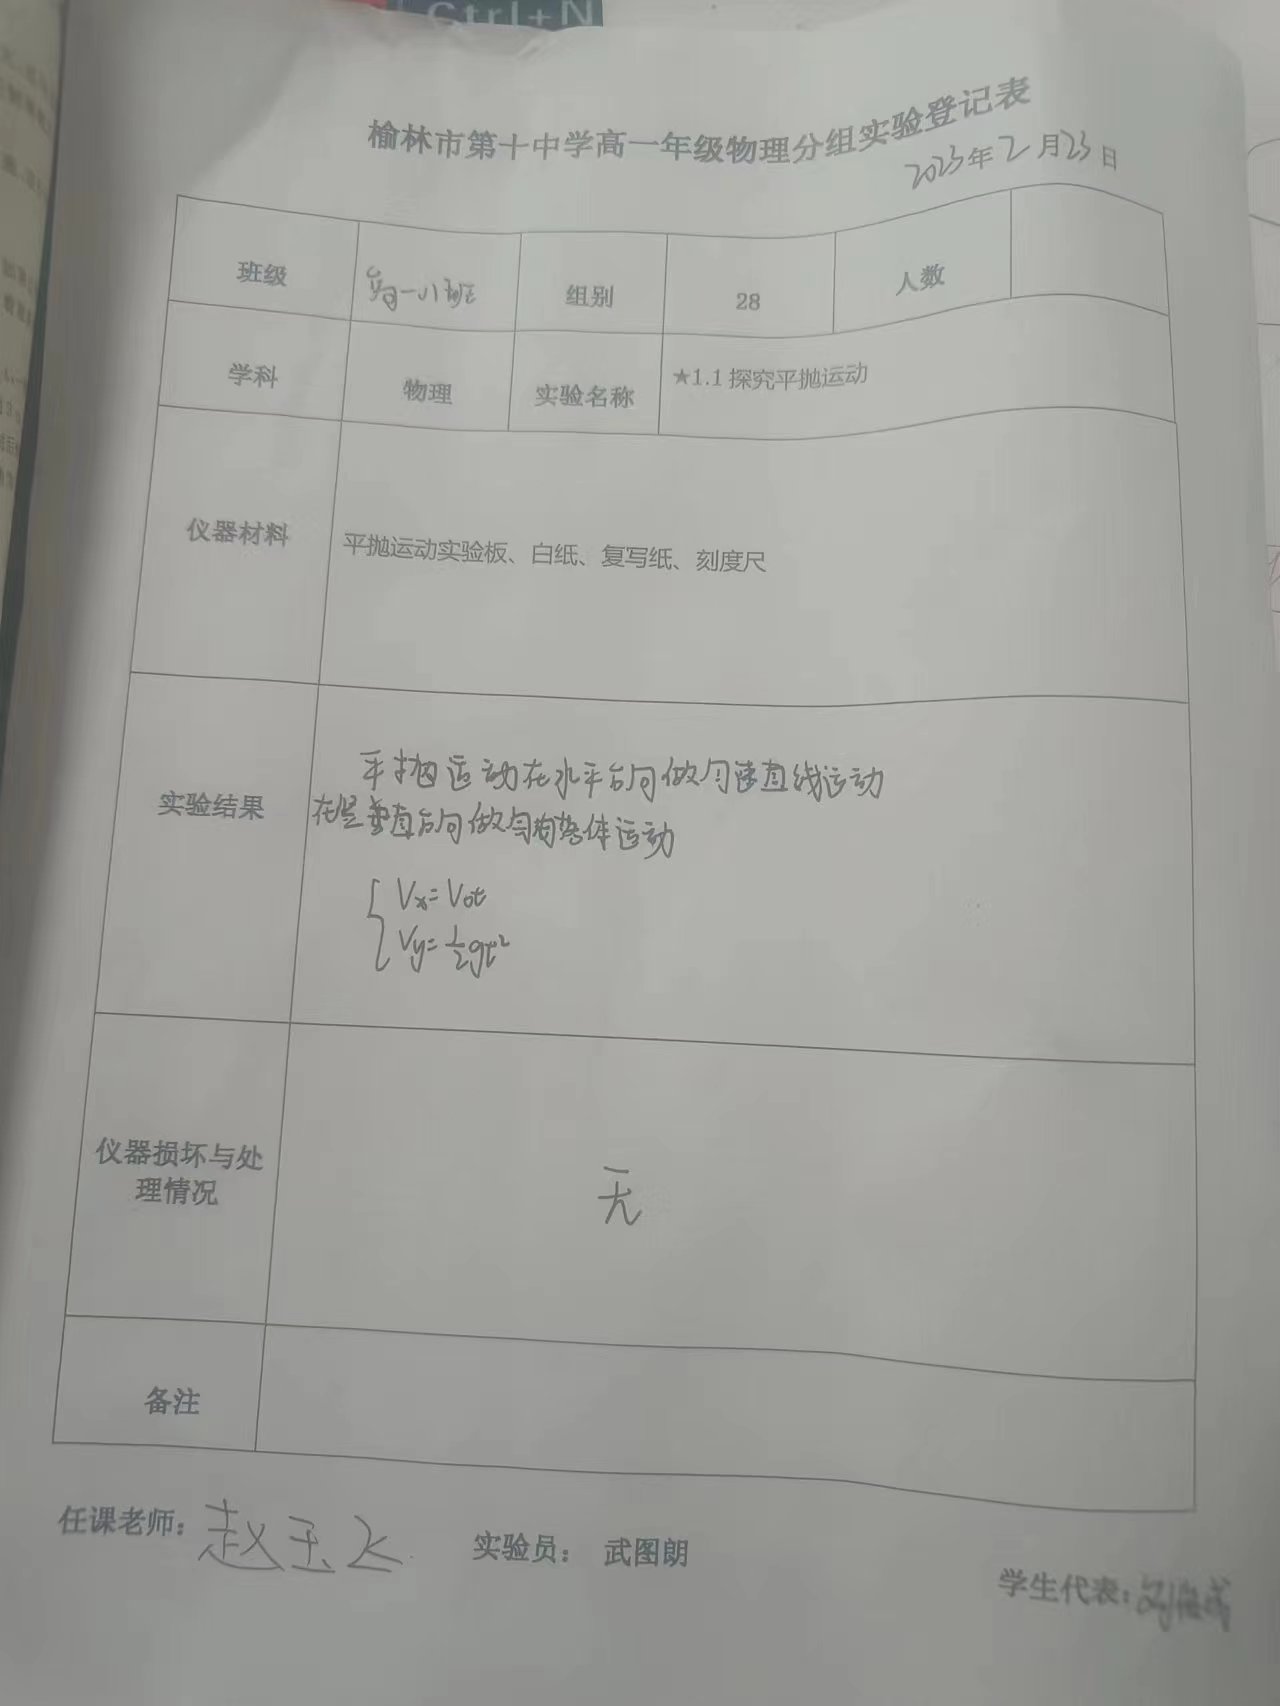 Ctrl+N
榆林市第十中学高一年级物理分组实验登记表
2023年2月23日
班级 高一八班 组别 28 人数
学科 物理 实验名称 ★1.1 探究平抛运动
仪器材料 平抛运动实验板、白纸、复写纸、刻度尺
平抛运动在水平方向做匀速直线运动
实验结果 在竖直方向做自由落体运动
Vx=V0t
Vy=1/2gt²
仪器损坏与处
理情况
无
备注
任课老师：赵玉飞 实验员： 武图朗
学生代表：